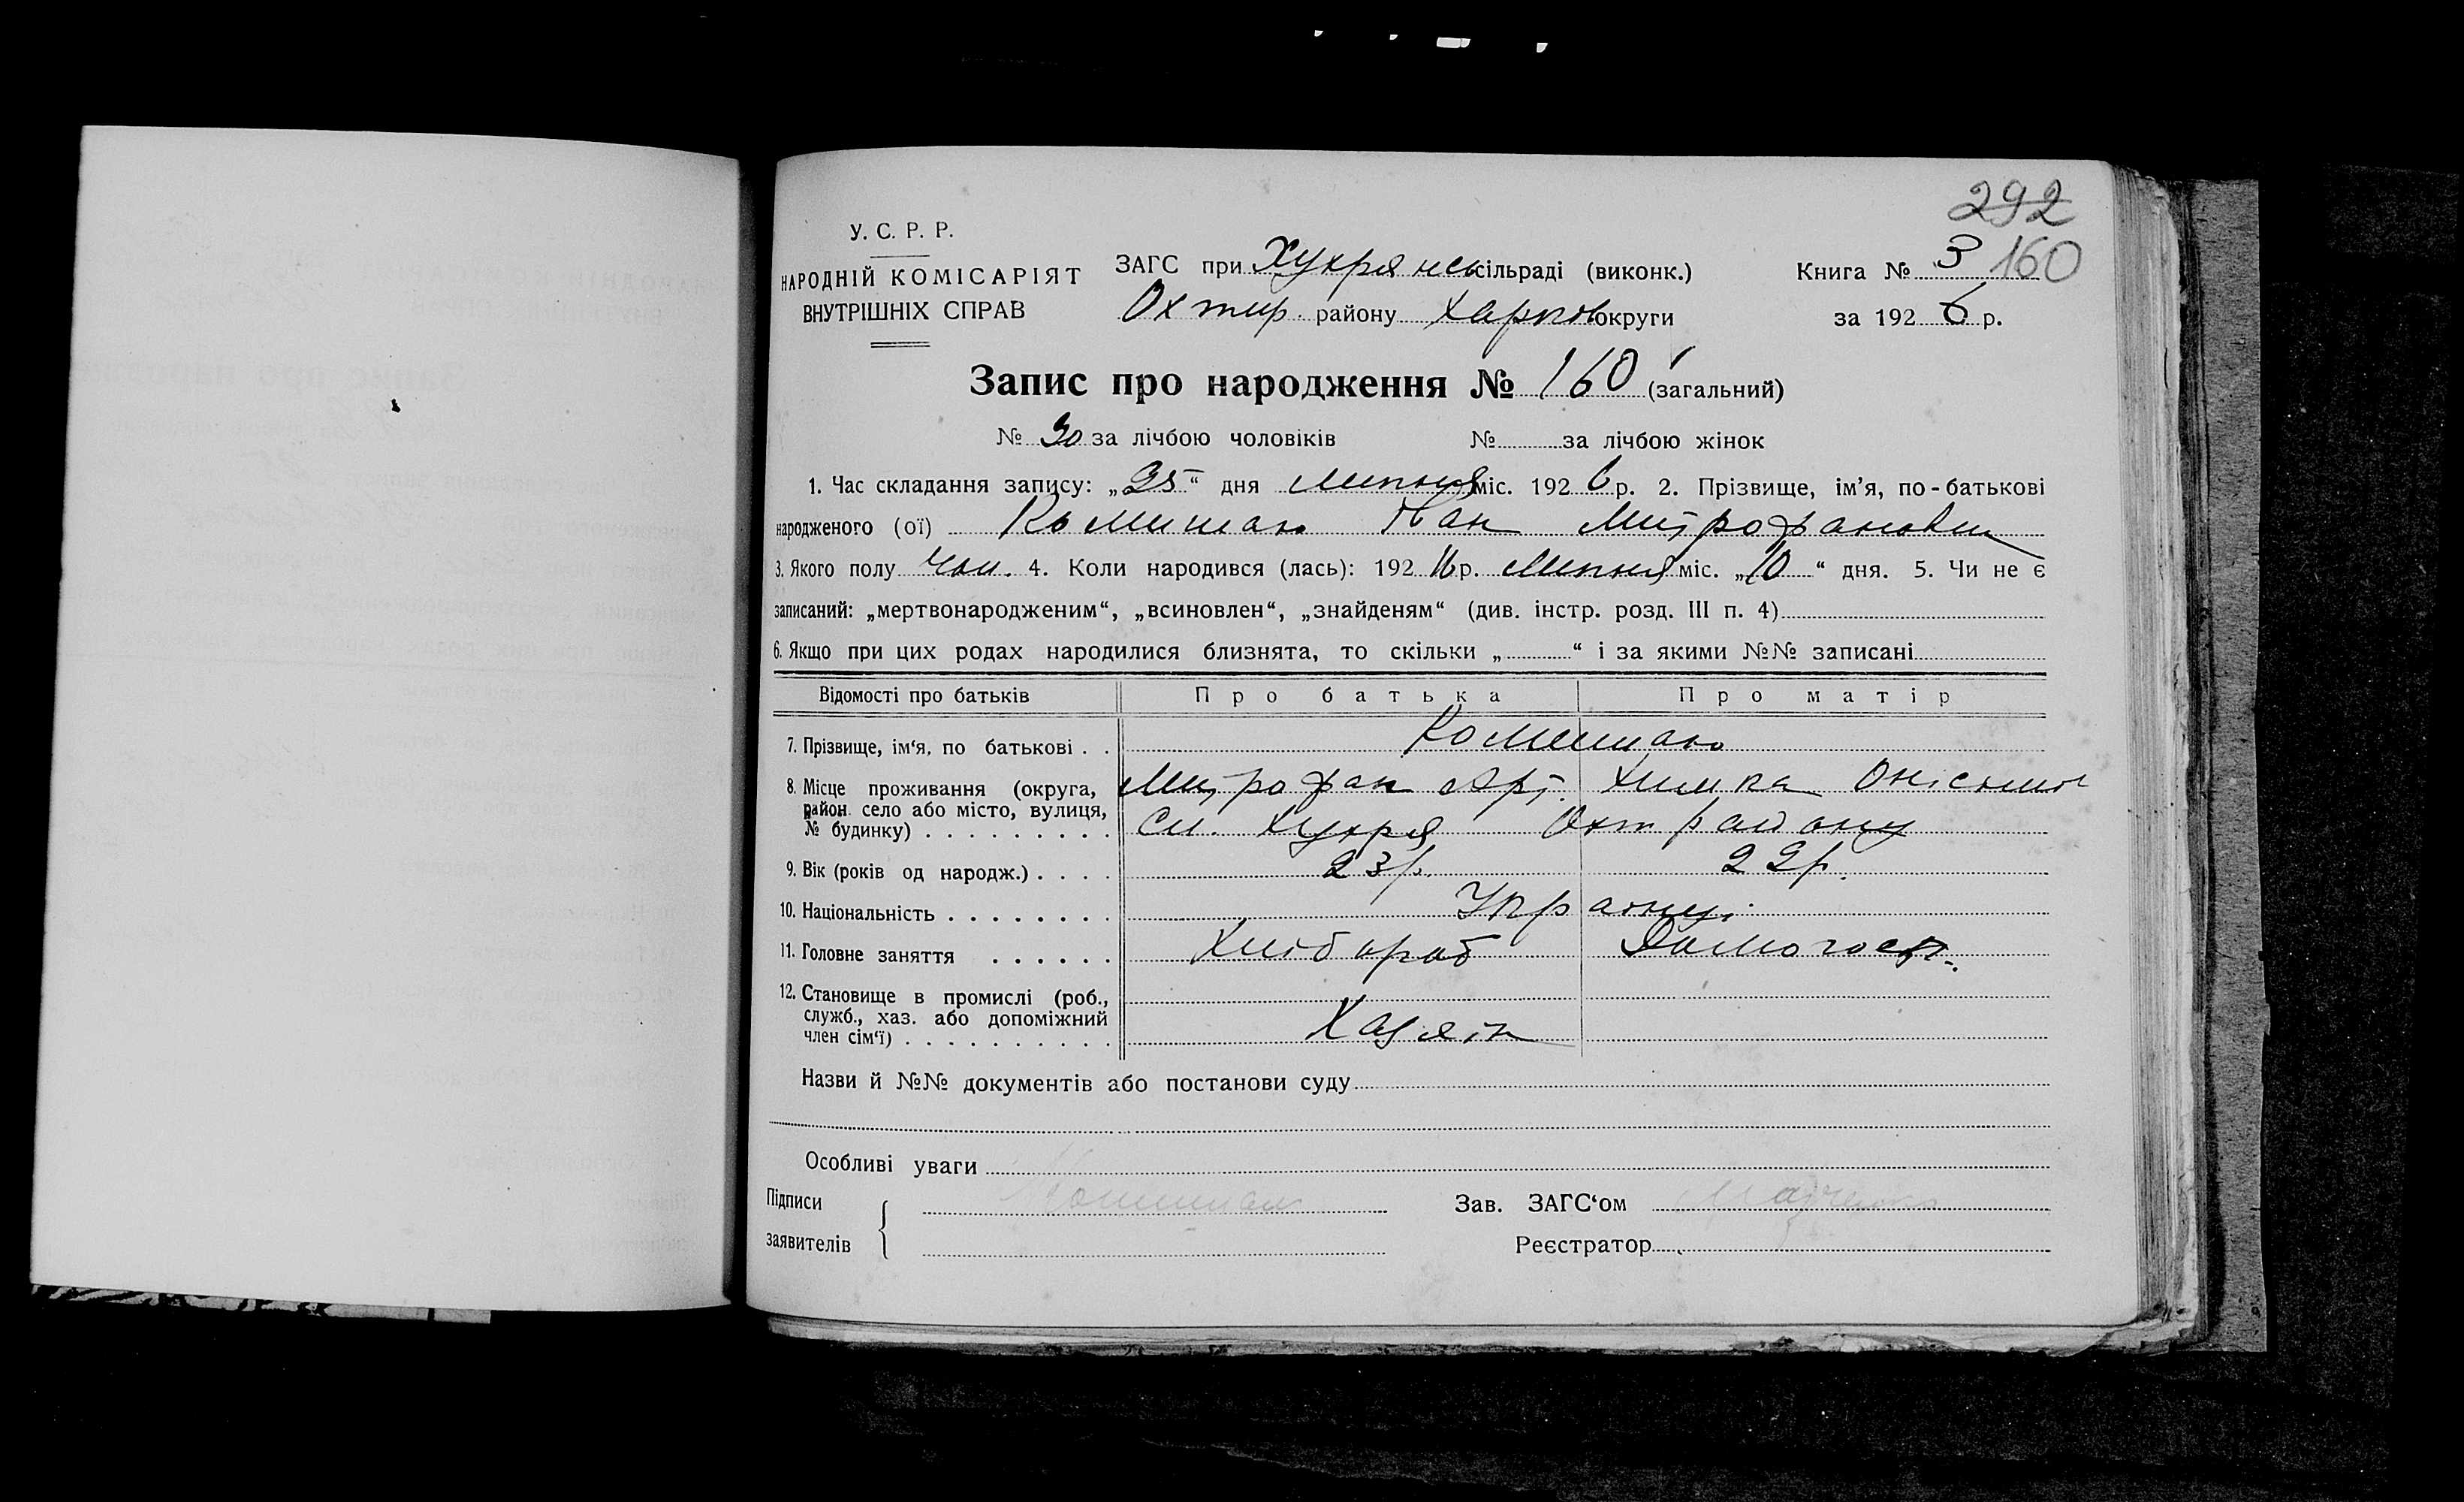 292
У. С. Р. Р.
НАРОДНІЙ КОМІСАРІЯТ
ВНУТРІШНІХ СПРАВ
ЗАГС при Хухрянськ сільраді (виконк.)
Охтир. району Харков округи
Книга № 3 160
за 1926 р.
Запис про народження № 160 (загальний)
№ 90 за лічбою чоловіків № за лічбою жінок
1. Час складання запису: „25“ дня липня міс. 1926 р. 2. Прізвище, ім'я, по-батькові
народженого (ої) Комишан Іван Митрофанович
3. Якого полу чол. 4. Коли народився (лась): 1926 р. липня міс. „10“ дня. 5. Чи не є
записаний: „мертвонародженим“, „всиновлен“, „знайденям“ (див. інстр. розд. III п. 4)
6. Якщо при цих родах народилися близнята, то скільки „ “ і за якими №№ записані
Відомості про батьків Про батька Про матір
7. Прізвище, ім'я, по батькові . . Комишан
8. Місце проживання (округа, Митрофан Арт. Химка Онісімов
район село або місто, вулиця,
№ будинку) . . . . . . . . . Сл. Хухря Охт району
9. Вік (років од народж.) . . . . 23 р. 22 р.
10. Національність . . . . . . . . Українці
11. Головне заняття . . . . . . Хлібороб Домогосп.
12. Становище в промислі (роб.,
служб., хаз. або допоміжний
член сім'ї) . . . . . . . . . . Хазяїн
Назви й №№ документів або постанови суду
Особливі уваги
Підписи
заявителів
Комишан
Зав. ЗАГС'ом
Реєстратор